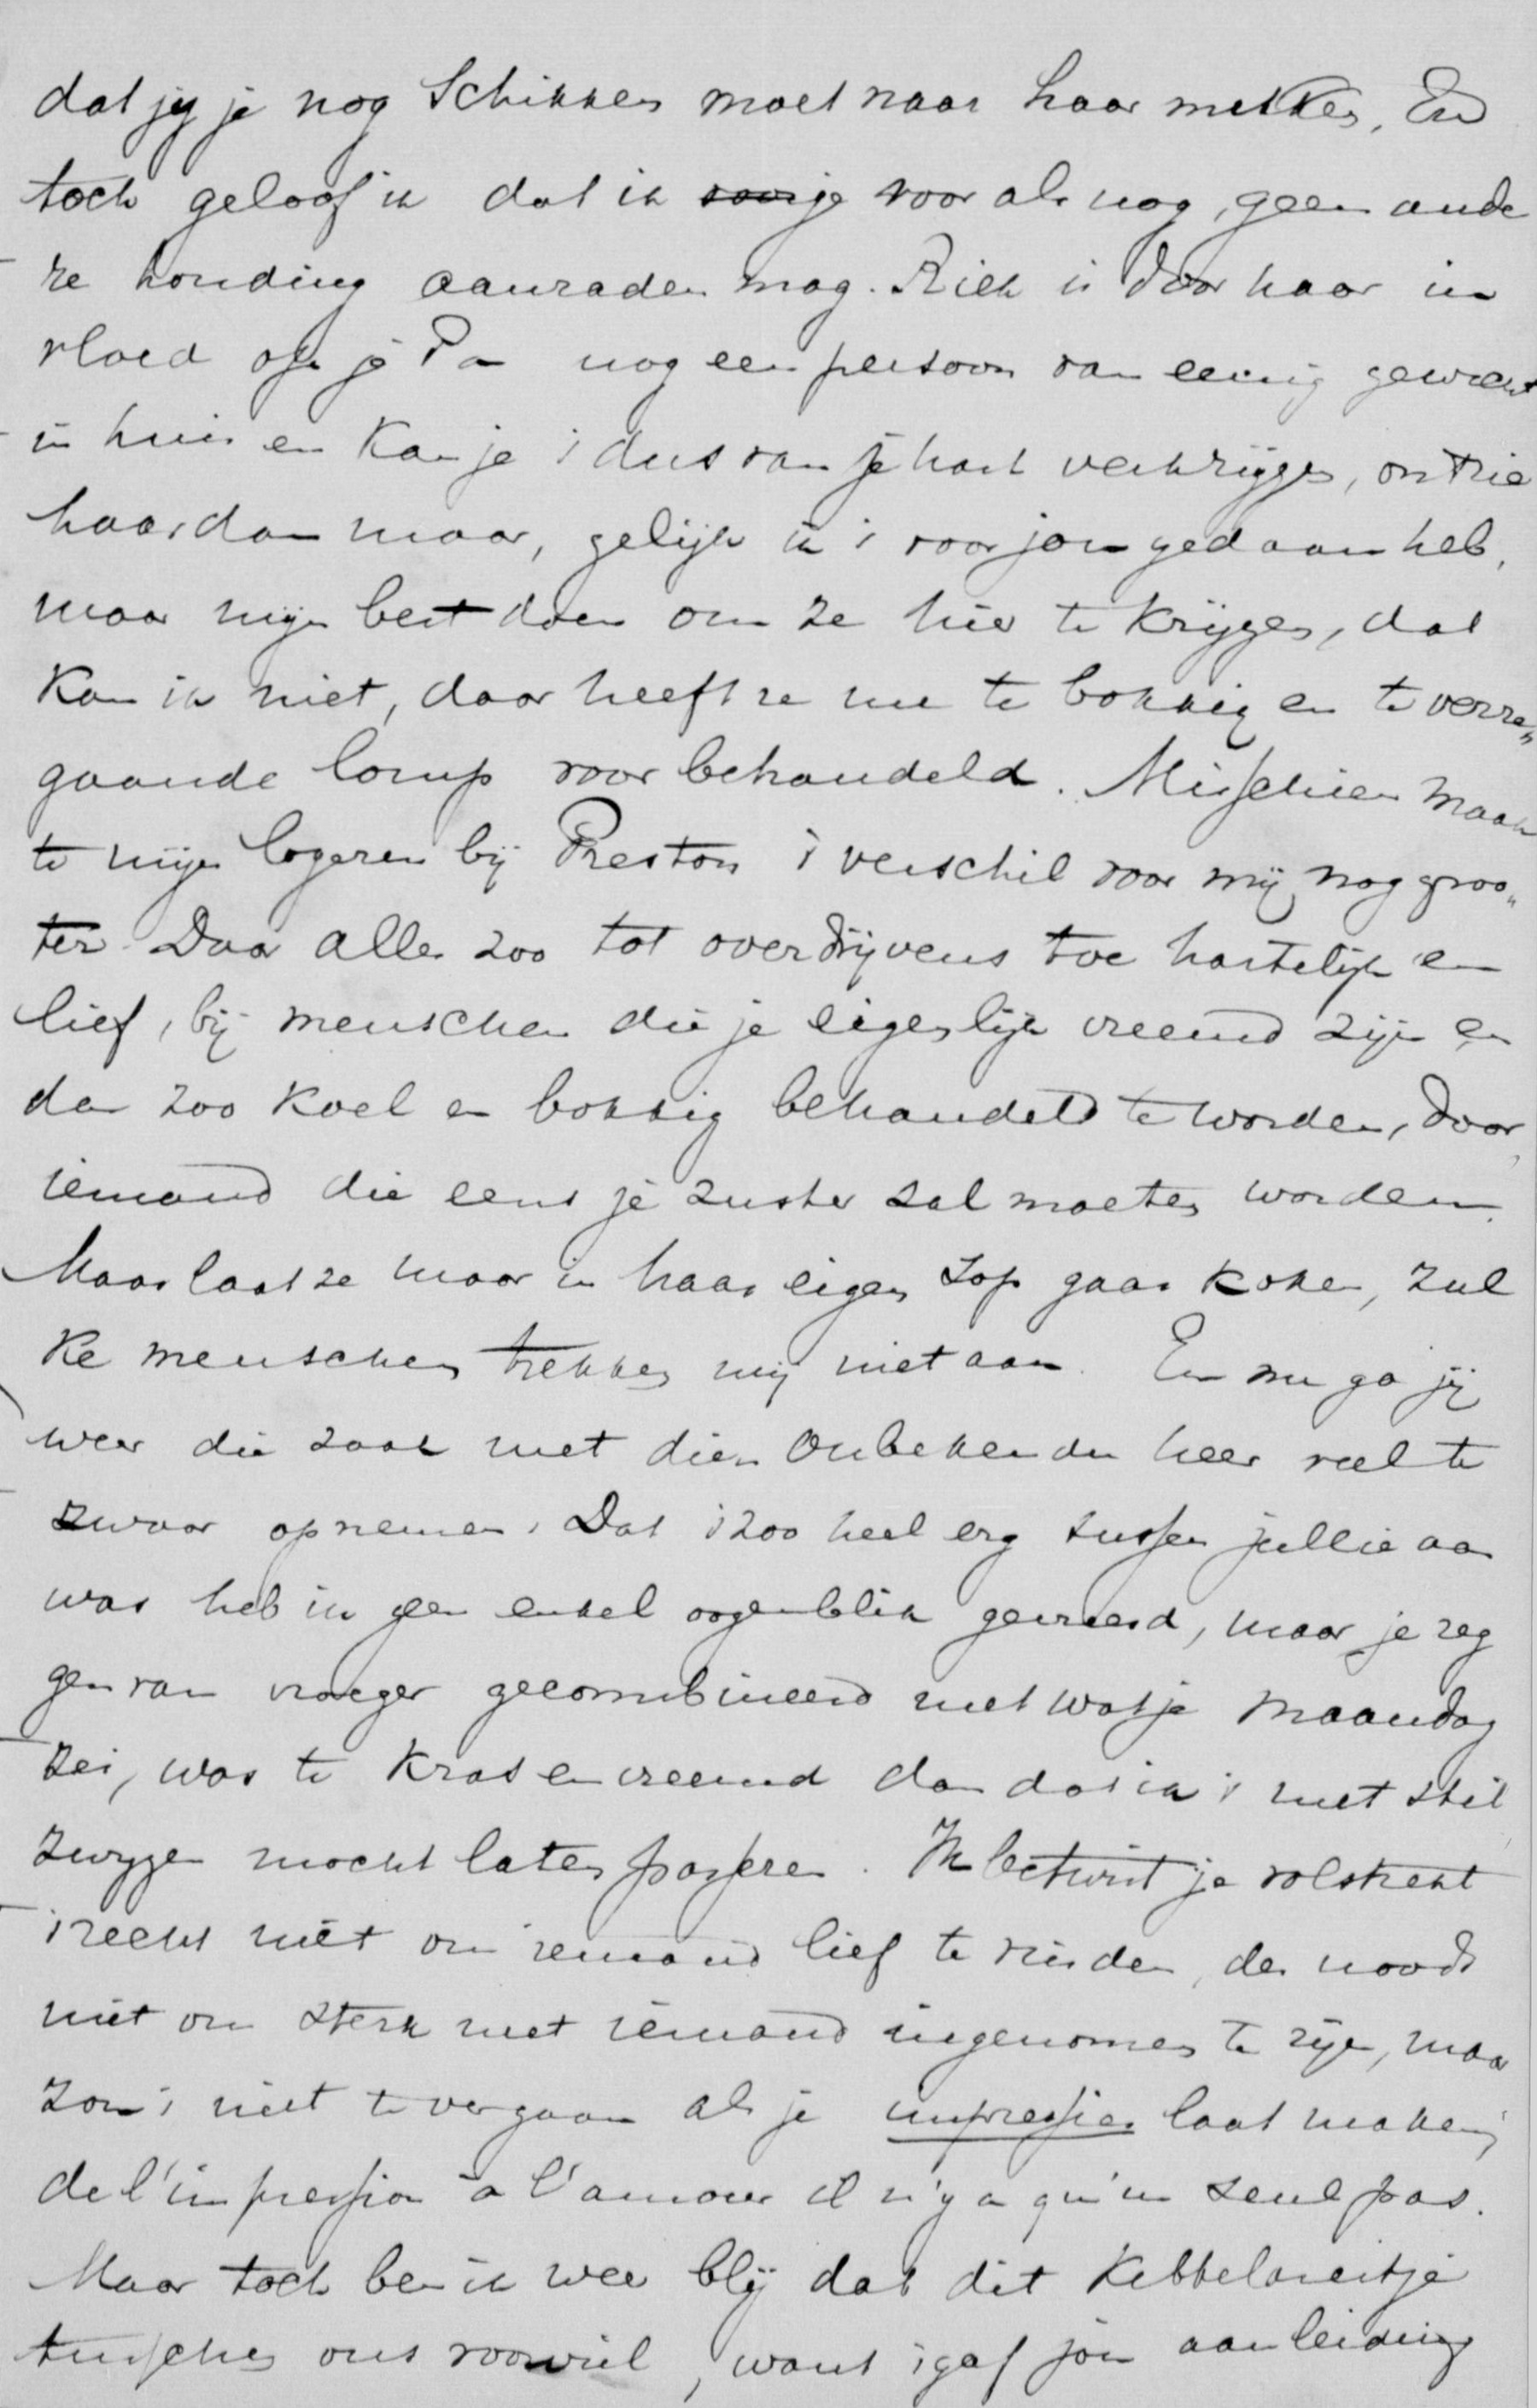 dat jij je nog schikken moet naar haar nukken. En
toch geloof ik dat ik je voor als nog, geen ande
re houding aanraden mag. Riek is door haar in
vloed op je Pa nog een persoon van eenig gewicht
in huis en kan je 't dus van je hart verkrijgen, ontzie
haar dan maar, gelijk ik 't voor jou gedaan heb,
maar mijn best doen om ze hier te krijgen, dat
kan ik niet, daar heeft ze me te bokkig en te verre„
gaande lomp voor behandeld. Misschien maak
te mijn logeren bij Preston 't verschil voor mij nog groo„
ter. Daar alles zoo tot overdrijvens toe hartelijk en
lief, bij menschen die je eigenlijk vreemd zijn en
dan zoo koel en bokkig behandeld te worden, door
iemand die eens je zuster zal moeten worden.
Maar laat ze maar in haar eigen sop gaar koken, zul
ke menschen trekken mij niet aan. En nu ga jij
weer die zaak met dien onbekenden heer veel te
zwaar opnemen. Dat 't zoo heel erg tussen jullie aan
was heb ik geen enkel oogenblik gevreesd, maar je zeg
gen van vroeger gecombineerd met wat je Maandag
zei, was te kras en vreemd dan dat ik 't met stil
zwijgen mocht laten passeren. Ik betwist je volstrekt
't recht niet om iemand lief te vinden, des noods
niet om sterk met iemand ingenomen te zijn, maar
zon 't niet te ver gaan als je impressies laat maken;
de l'impression à l'amour il n'y a qu'un seul pas.
Maar toch ben ik weer blij dat dit kibbelareitje
tusschen ons voorviel, want 't gaf jou aanleiding